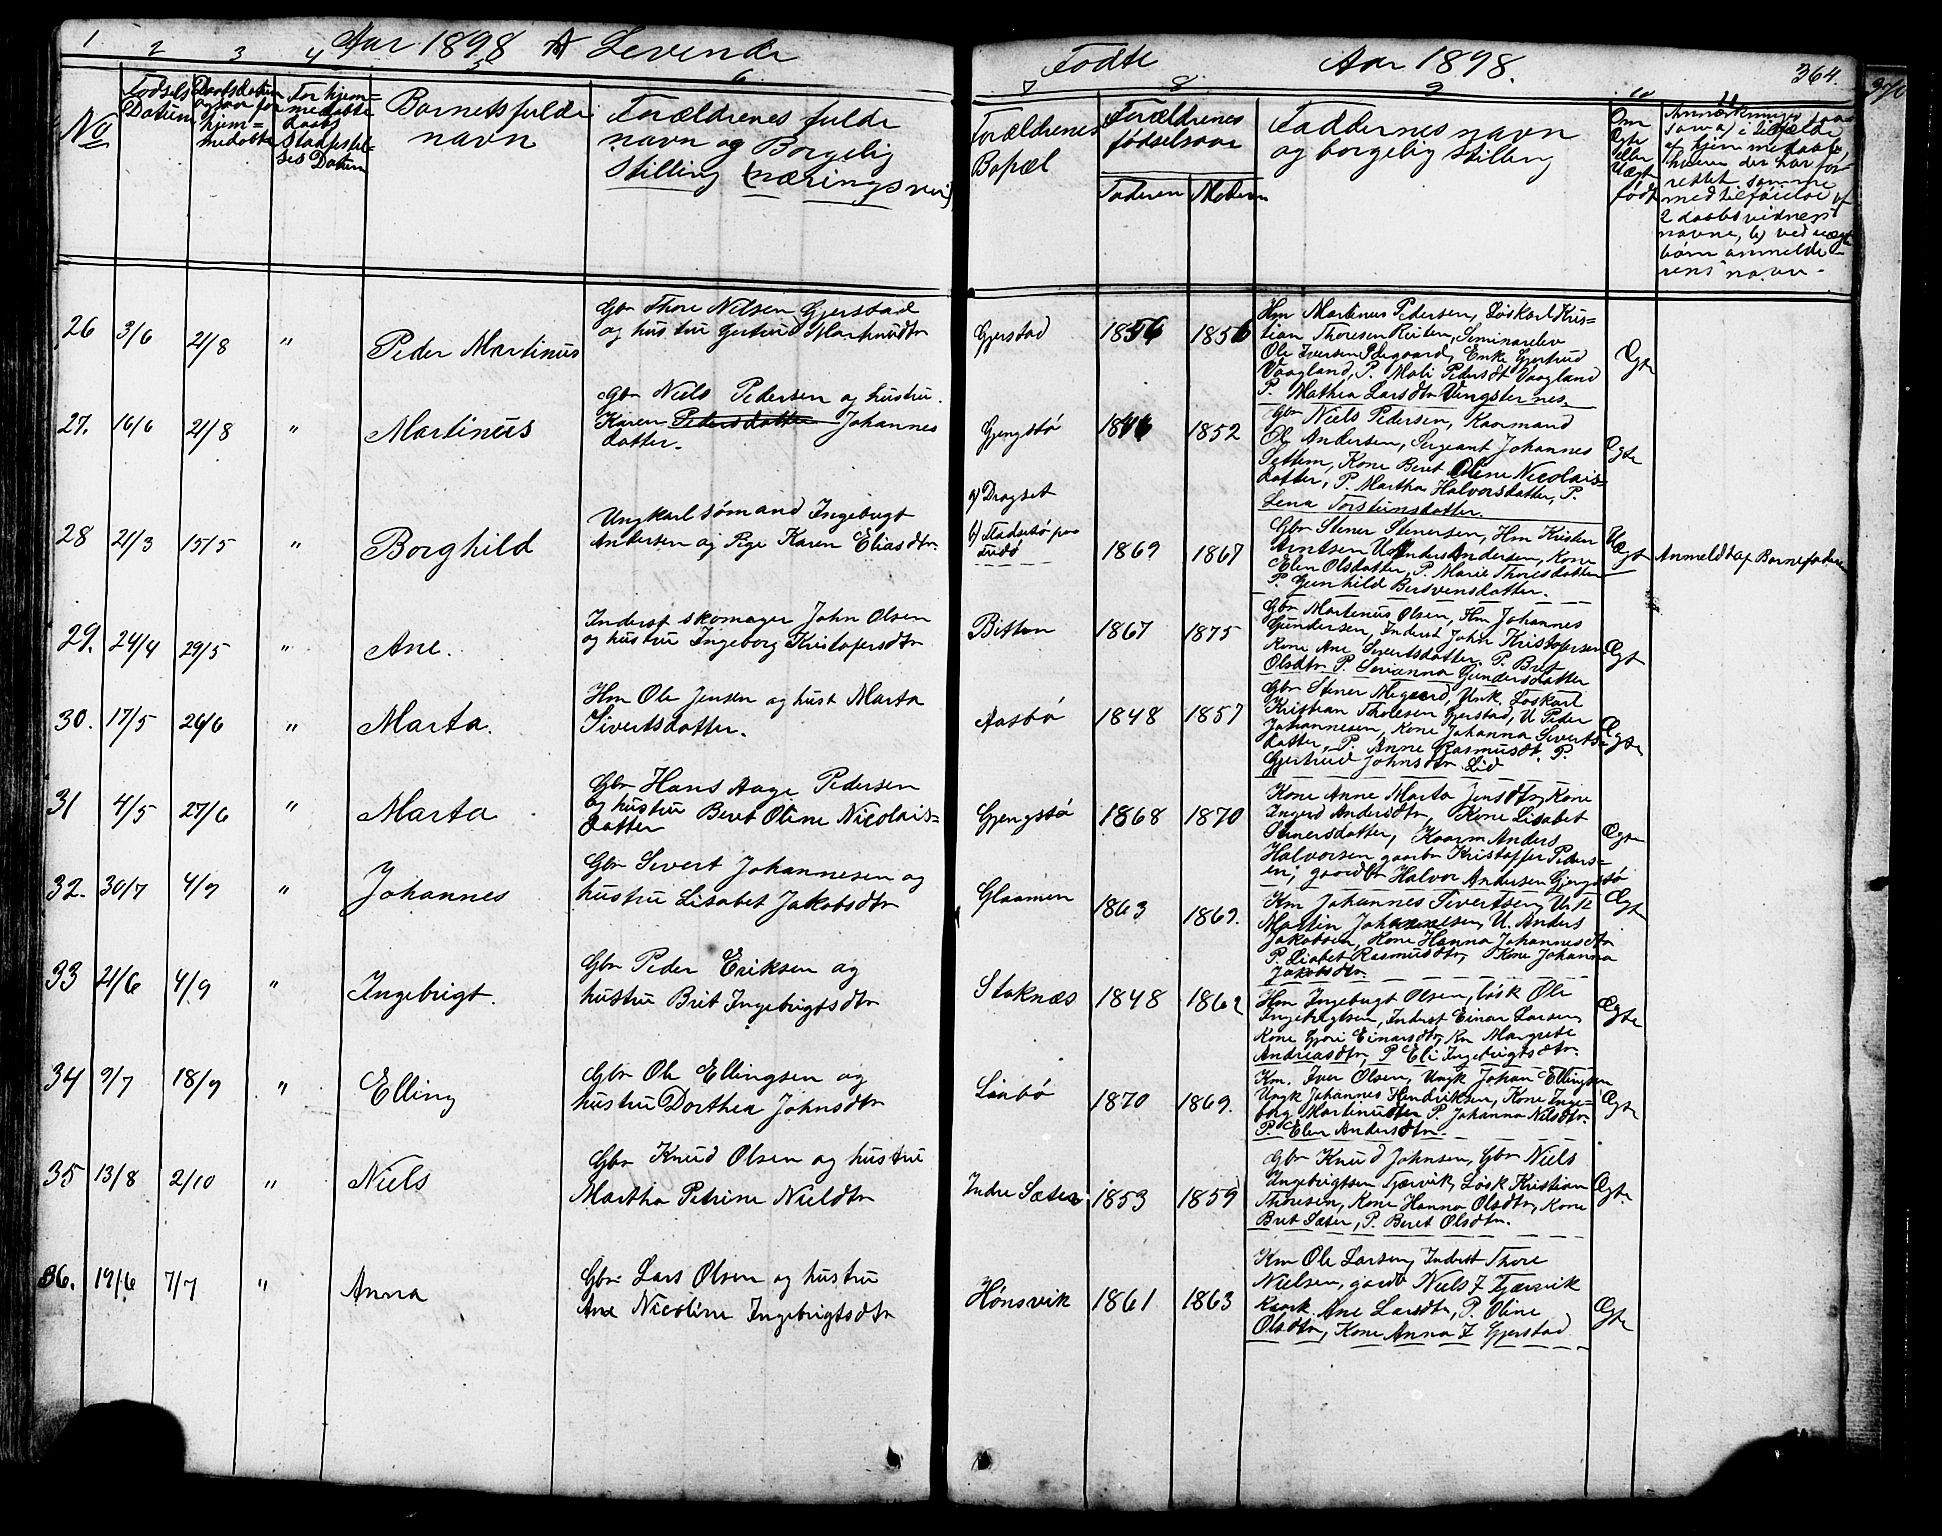 1 2 3 4 Aar 1898 A Levende
5 6
No
Fødsels Datum
Daabsdatum
hjem=
medøbte
For hjem=
medøbte
daabs
Stadfestel-
ses Datum
Barnets fulde
navn
Forældrenes fulde
navn og Borgelig
Stilling (næringsvei)
Fødte Aar 1898. 364.
7 8 9 10 11
Forældrenes
Bopæl
Forældrenes
fødselsaar
Faderen Moderen
Faddernes navn
og borgelig stilling
Om
Ægte
eller
Uægt
født
26 3/6 21/8 "
Peder Martinus
Gbr Thore Nilsen Gjerstad
og hustru Gjertrud Martinusdtr
Gjerstad 1856 1856
Hm Martinus Pedersen, Løskarl Kris=
tian Thoresen Seminarelev
Ole Iversen Enke Gjertrud
Vaagland, P. Mali Pedersdt Vaagland
P. Mathea Larsdtr
Ægte
27. 16/6 21/8 "
Martinus
Gbr Niels Pedersen og hustru
Karen Pedersdatter Johannes
datter.
Gjengstø 1852
Gbr Niels Pedersen, Kaarmand
Ole Andersen, Sergeant Johannes
Settem, Kone Beret Oline Nicolais=
datter, P. Martha Halvorsdatter, P.
Lena Torsteinsdatter.
Ægte
28 21/3 15/5 "
Borghild
Ungkarl sømand Ingebrigt
Andersen og Pige Karen Eliasdtr
a) Dragset
b) Fladsetø paa
1869 1867
Gbr Stener Stenersen, Hm Kristen
Arntsen U Anders Andersen, Kone
Elen Olsdatter, P. Marie Thoresdatter
P. Gunhild Bersvensdatter.
Uægt
Anmeldt af Barnefaderen
29. 24/4 29/5 "
Ane.
Inderst skomager John Olsen
og hustru Ingeborg Kristofersdtr
Bitten 1867 1875
Gbr Martinus Olsen, Hm Johannes
Gundersen, Inderst John Kristofersen
Kone Ane Sivertsdatter P. Bret
Olsdtr P. Serianna Gundersdatter
Ægte
30. 17/5 26/6 "
Marta.
Hm Ole Jensen og hust Marta
Sivertsdatter.
Aasbø 1848 1857
Gbr Stener Unk. Løskarl
Kristian Thoresen Gjerstad, U Peder
Johannesen, Kone Johanna Siverts=
datter, P. Anne Rasmusdt, P.
Gjertrud Johnsdtr Lid
Ægte
31 4/5 27/6 "
Marta
Gbr Hans Aage Pedersen
og hustru Beret Oline Nicolais=
datter
Gjengstø 1868 1870
Kone Anne Marta Jensdtr, Kone
Ingerd Andersdtr, Kone Lisabet
Stenersdatter, Kaarm Anders
Halvorsen gaarbr Kristoffer Peders=
en, gaardbr Halvor Andersen Gjengstø
Ægte
32. 30/7 4/9 "
Johannes
Gbr Sivert Johannesen og
hustru Lisabet Jakobsdtr
Glaamen 1863 1869.
Km Johannes Sivertsen, Unk
Martin Johannesen, U. Anders
Jakobsen, Kone Hanna Johannesdtr
P. Lisbet Rasmusdtr, Kone Johanna
Jakobsdtr.
Ægte
33 21/6 4/9 "
Ingebrigt.
Gbr Peder Eriksen og
hustru Brit Ingebrigtsdtr
Staknæs 1848 1862
Hm Ingebrigt Olsen, løsk Ole
Ingebrigtsen, Inderst Einar Larsen,
Kone Gjøri Einarsdtr, Kn Margrete
Andreasdtr, P Eli Ingebrigtsdtr.
Ægte
34 9/7 18/9 "
Elling
Gbr Ole Ellingsen og
hustru Dorthea Johnsdtr
Liabø 1870 1869.
Km. Iver Olsen, Ungk Johan Ellingsen
Ungk Johannes Hendriksen, Kone Inge=
borg Martinusdtr P. Johanna Nilsdtr.
P. Elen Andersdtr.
Ægte
35 13/8 2/10 "
Niels
Gbr Knud Olsen og hustru
Martha Petrine Nielsdtr
Indre Sæter 1853 1859
Gbr Knud Johnsen, Gbr Niels
Ingebrigtsen Fjærvik, Løsk Kristian
Thoresen, Kone Hanna Olsdtr, Kone
Bret Sæter, P. Beret Olsdtr.
Ægte
36. 19/6 7/7 "
Anna
Gbr Lars Olsen og hustru
Ane Nicoline Ingebrigtsdtr
Hønsvik 1861 1863
Km Ole Larsen, Inderst Thore
Nielsen, gardb Niels I Fjærvik
Kaark. Ane Larsdtr, P. Oline
Olsdtr, Kone Anna T Gjerstad
Ægte